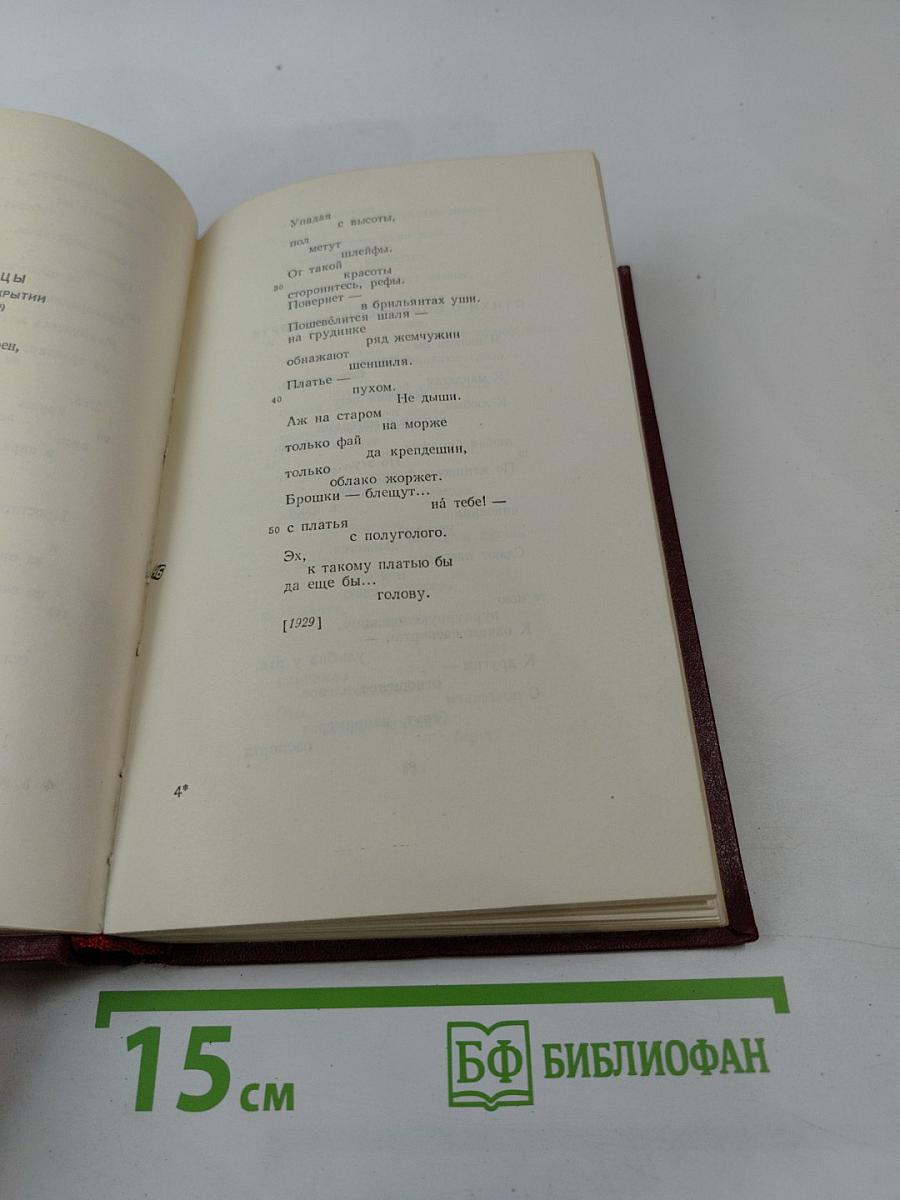 ЦЫ
КРЫТИИ
Упадая
с высоты,
пол
метут
шлейфы.
От такой
красоты
30 сторонитесь, рефы.
Повернет —
в брильянтах уши.
Пошевéлится шаля —
на грудинке
ряд жемчужин
обнажают
шеншиля.
Платье —
пухом.
40 Не дыши.
Аж на старом
на морже
только фай
да крепдешин,
только
облако жоржет.
Брошки — блещут...
нá тебе! —
50 с платья
с полуголого.
Эх,
к такому платью бы
да еще бы...
голову.
[1929]
4*
15 см
БФ БИБЛИОФАН